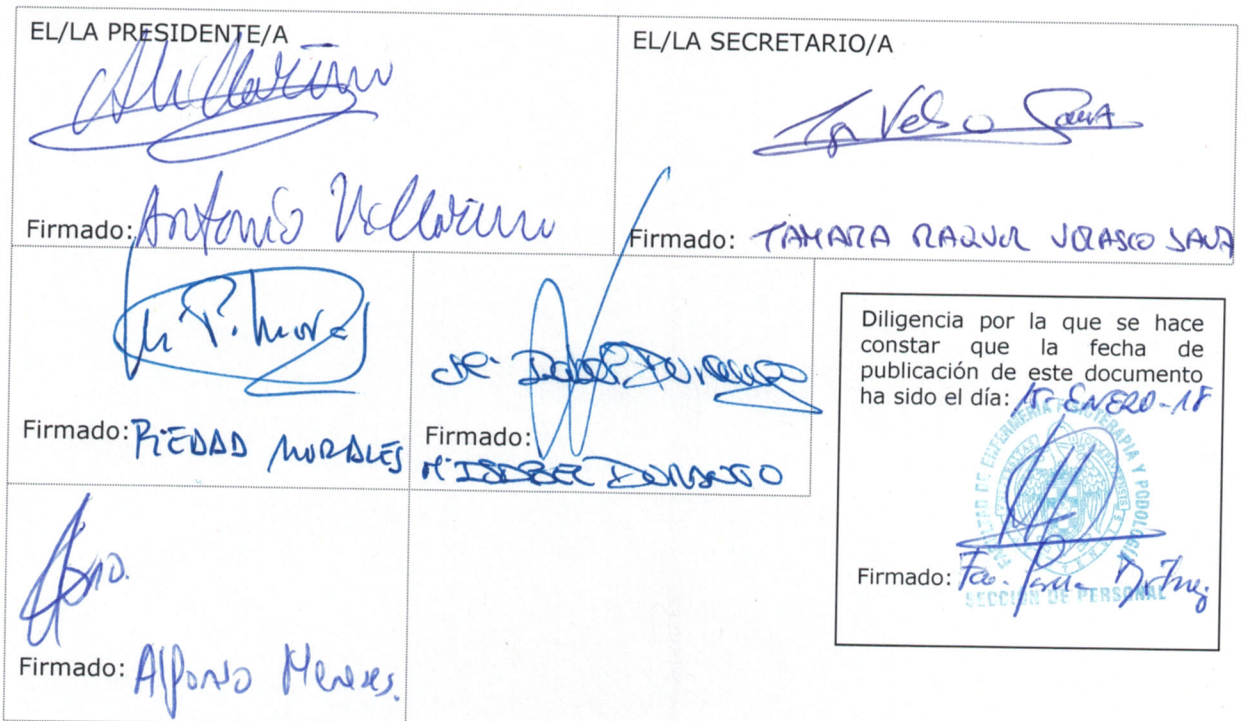 EL/LA PRESIDENTE/A
Firmado: Antonio Villarino
EL/LA SECRETARIO/A
Firmado: TAMARA RAQUEL VELASCO SANZ
Firmado: PIEDAD MORALES
Firmado:
Mª ISABEL DURANGO
Firmado: Alfonso Meneses.
Diligencia por la que se hace
constar que la fecha de
publicación de este documento
ha sido el día: 15-ENERO-18
FACULTAD DE ENFERMERÍA FISIOTERAPIA Y PODOLOGÍA
Firmado: Fco.
SECCIÓN DE PERSONAL